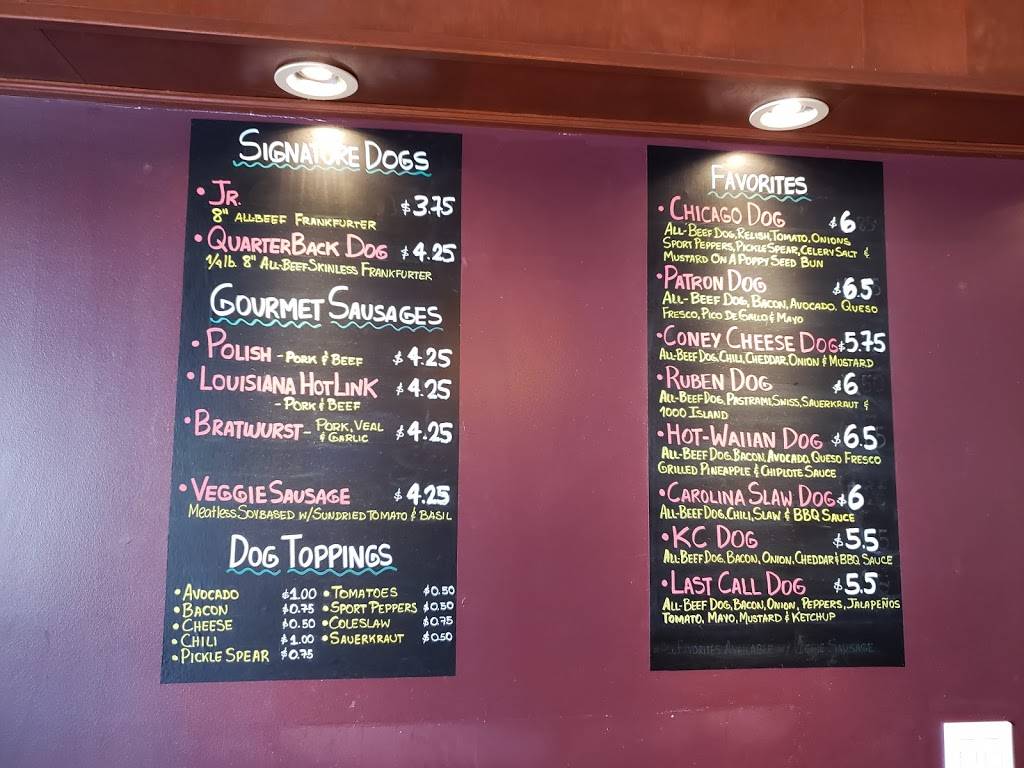 SIGNATURE DOGS
• JR. $3.75
8" ALL-BEEF FRANKFURTER
• QUARTERBACK DOG $4.25
1/4 lb. 8" ALL-BEEF SKINLESS FRANKFURTER
GOURMET SAUSAGES
• POLISH - PORK & BEEF $4.25
• LOUISIANA HOTLINK $4.25
- PORK & BEEF
• BRATWURST - PORK, VEAL & GARLIC $4.25
• VEGGIE SAUSAGE $4.25
Meatless SOYBASED W/SUNDRIED TOMATO & BASIL
DOG TOPPINGS
• AVOCADO $1.00
• BACON $0.75
• CHEESE $0.50
• CHILI $1.00
• PICKLE SPEAR $0.75
• TOMATOES $0.50
• SPORT PEPPERS $0.50
• COLESLAW $0.75
• SAUERKRAUT $0.50
FAVORITES
• CHICAGO DOG $6
ALL-BEEF DOG, RELISH, TOMATO, ONIONS
SPORT PEPPERS, PICKLE SPEAR, CELERY SALT &
MUSTARD ON A POPPY SEED BUN
• PATRON DOG $6.5
ALL-BEEF DOG, BACON, AVOCADO. QUESO
FRESCO, PICO DE GALLO & MAYO
• CONEY CHEESE DOG $5.75
ALL-BEEF DOG, CHILI, CHEDDAR, ONION & MUSTARD
• RUBEN DOG $6
ALL-BEEF DOG, PASTRAMI, SWISS, SAUERKRAUT &
1000 ISLAND
• HOT-WAIIAN DOG $6.5
ALL-BEEF DOG, BACON, AVOCADO, QUESO FRESCO
GRILLED PINEAPPLE & CHIPLOTE SAUCE
• CAROLINA SLAW DOG $6
ALL-BEEF DOG, CHILI, SLAW & BBQ SAUCE
• KC DOG $5.5
ALL-BEEF DOG, BACON, ONION, CHEDDAR & BBQ SAUCE
• LAST CALL DOG $5.5
ALL-BEEF DOG, BACON, ONION, PEPPERS, JALAPEÑOS
TOMATO, MAYO, MUSTARD & KETCHUP
FAVORITES AVAILABLE W/ VEGGIE SAUSAGE